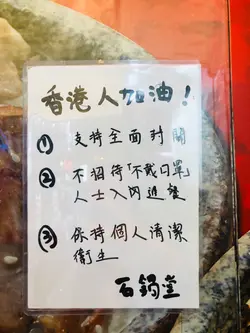 香港人加油！
① 支持全面封關
② 不招待「不戴口罩」
人士入內進餐
③ 保持個人清潔
衞生
石鍋堂